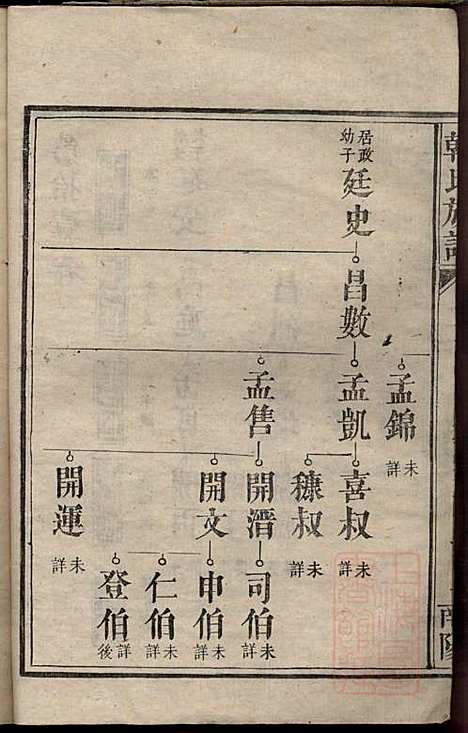 韓氏族譜
南陽
居政幼子
廷史
昌數
孟錦
未詳
孟凱
孟售
喜叔
未詳
穅叔
未詳
開潛
開文
開運
未詳
司伯
未詳
申伯
未詳
仁伯
未詳
登伯
詳後